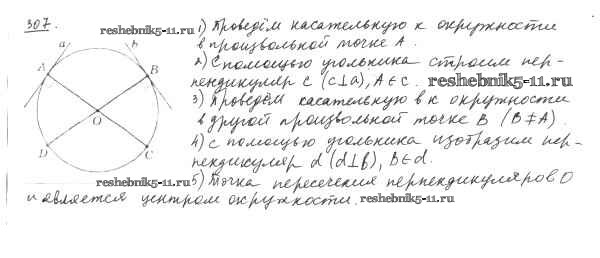 307.
reshebnik5-11.ru
1) Проведём касательную к окружности
в произвольной точке А.
2) С помощью угольника строим пер-
пендикуляр с (с⊥а), А∈с. reshebnik5-11.ru
3) Проведём касательную в к окружности
в другой произвольной точке В (В≠А).
4) с помощью угольника изобразим пер-
пендикуляр d (d⊥b), B∈d.
reshebnik5-11.ru 5) Точка пересечения перпендикуляров О
и является центром окружности. reshebnik5-11.ru
a
b
A
B
O
D
C